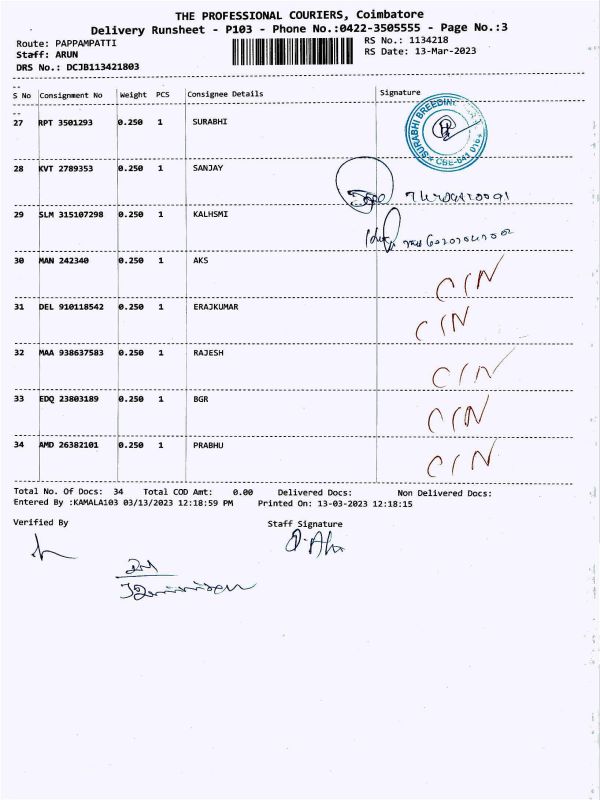 THE PROFESSIONAL COURIERS, Coimbatore
Delivery Runsheet - P103 - Phone No.:0422-3505555 - Page No.:3
Route: PAPPAMPATTI RS No.: 1134218
Staff: ARUN RS Date: 13-Mar-2023
DRS No.: DCJB113421803
S No Consignment No Weight PCS Consignee Details Signature
27 RPT 3501293 0.250 1 SURABHI
SURABHI BREEDING
28 KVT 2789353 0.250 1 SANJAY
29 SLM 315107298 0.250 1 KALHSMI
30 MAN 242340 0.250 1 AKS C/N
31 DEL 910118542 0.250 1 ERAJKUMAR C/N
32 MAA 938637583 0.250 1 RAJESH C/N
33 EDQ 23803189 0.250 1 BGR C/N
34 AMD 26382101 0.250 1 PRABHU C/N
Total No. Of Docs: 34 Total COD Amt: 0.00 Delivered Docs: Non Delivered Docs:
Entered By :KAMALA103 03/13/2023 12:18:59 PM Printed On: 13-03-2023 12:18:15
Verified By Staff Signature